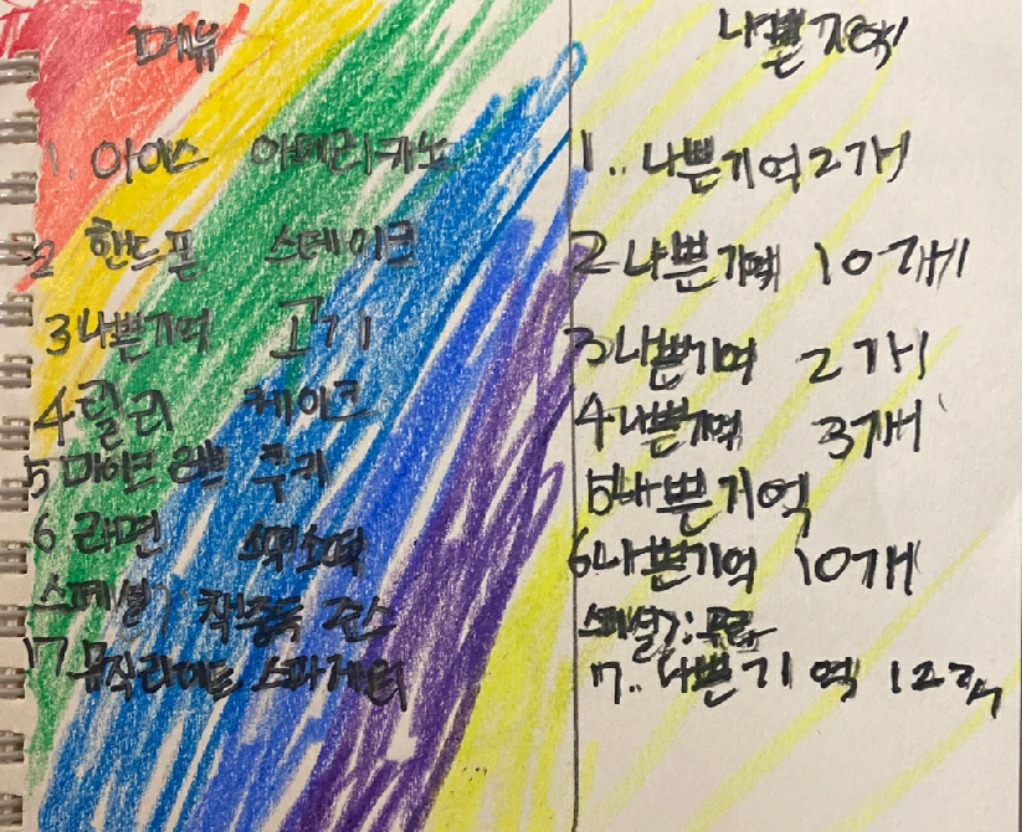 메뉴
1. 아이스 아메리카노
2 핸드폰 스테이크
3 나쁜기억 고기
4 릴리 케이크
5 마이크 러브 쿠키
6 라면 소떡소떡
스페셜7: 주스
7 뮤직라이드 스파게티
나쁜 기억
1.. 나쁜기억 2개
2 나쁜기억 10개
3 나쁜기억 2개
4 나쁜기억 3개
5 나쁜기억
6 나쁜기억 10개
스페셜7: 무료
7.. 나쁜기억 12개